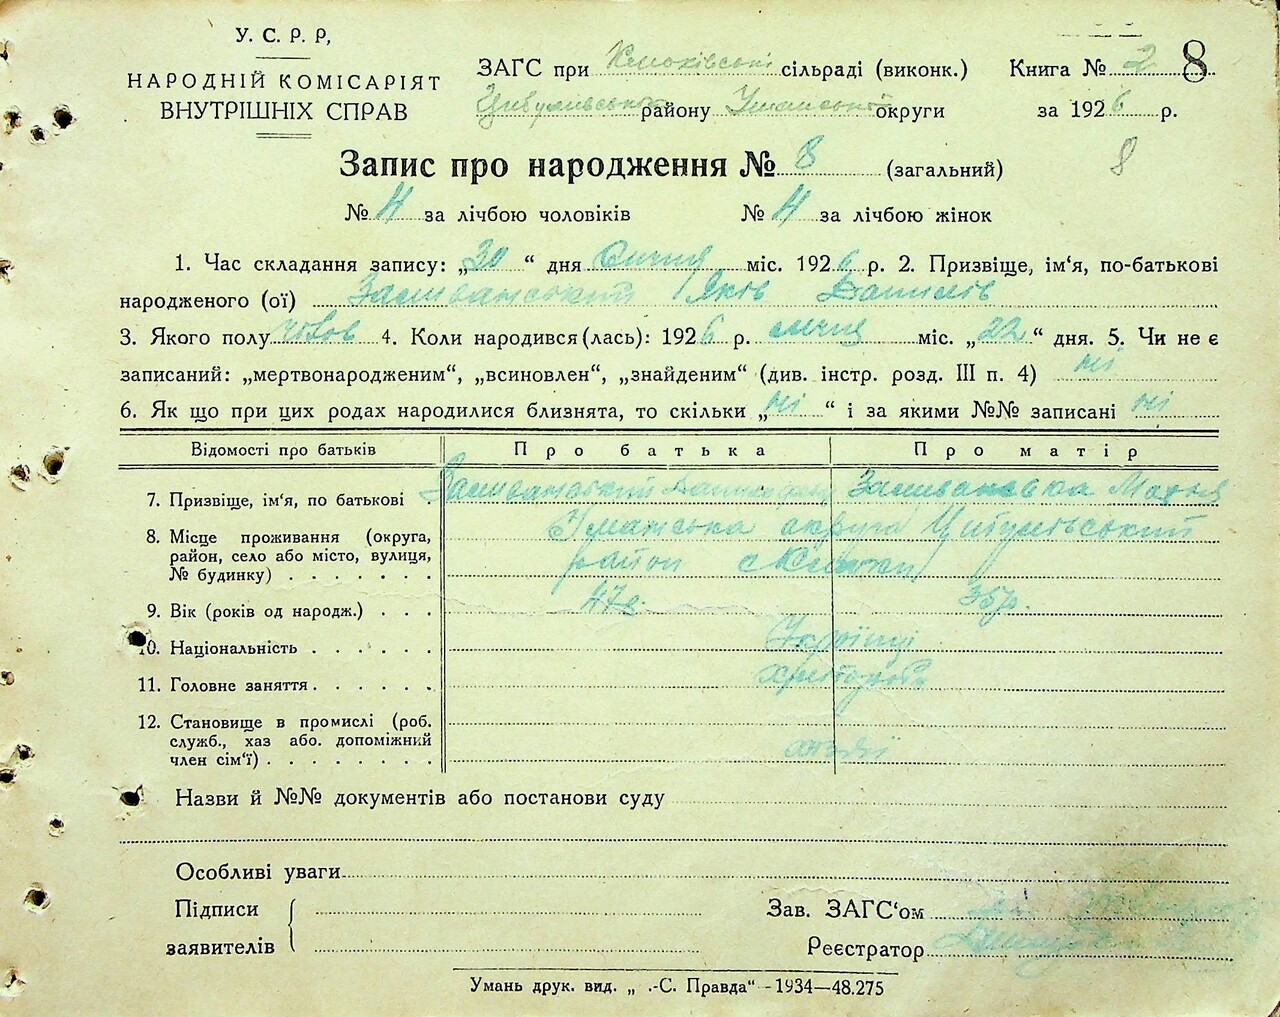 У. С. Р. Р,
НАРОДНІЙ КОМІСАРІЯТ
ВНУТРІШНІХ СПРАВ
ЗАГС при сільраді (виконк.)
Книга № 2 8
району Уманської округи
за 1926 р.
Запис про народження № 8 (загальний)
8
№ 4 за лічбою чоловіків № 4 за лічбою жінок
1. Час складання запису: „30“ дня Січня міс. 1926 р. 2. Призвіще, ім‘я, по-батькові
народженого (ої) Яків Данилів
3. Якого полу чолов 4. Коли народився (лась): 1926 р. січня міс. „22“ дня. 5. Чи не є
записаний: „мертвонародженим“, „всиновлен“, „знайденим“ (див. інстр. розд. III п. 4) ні
6. Як що при цих родах народилися близнята, то скільки „ні“ і за якими №№ записані ні
Відомості про батьків Про батька Про матір
7. Призвіще, ім‘я, по батькові
8. Місце проживання (округа, район, село або місто, вулиця, № будинку) Уманська округа Цибулівський
район
9. Вік (років од народж.) 47 35р.
10. Національність Українці
11. Головне заняття
12. Становище в промислі (роб. служб., хаз або. допоміжний член сім‘ї)
Назви й №№ документів або постанови суду
Особливі уваги
Підписи
заявителів
Зав. ЗАГС‘ом
Реєстратор
Умань друк. вид. „ .-С. Правда“ - 1934—48.275